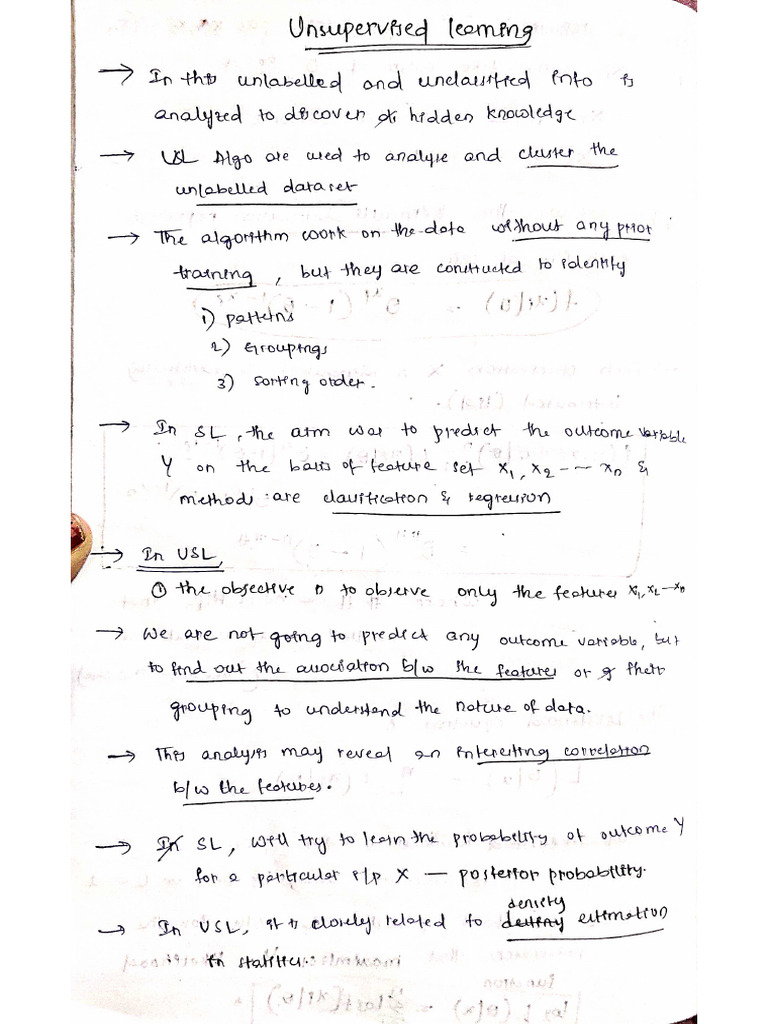 Unsupervised learning
→ In this unlabelled and unclassified info is
analyzed to discover hidden knowledge
→ USL Algo are used to analyse and cluster the
unlabelled dataset
→ The algorithm work on the data without any prior
training, but they are constructed to identify
1) patterns
2) Groupings
3) sorting order.
→ In SL, the aim was to predict the outcome variable
Y on the basis of feature set X1, X2 --- Xn &
methods are classification & regression
→ In USL,
① the objective is to observe only the features X1, X2 --- Xn
→ We are not going to predict any outcome variable, but
to find out the association b/w the features or their
grouping to understand the nature of data.
→ This analysis may reveal an interesting correlation
b/w the features.
→ In SL, will try to learn the probability of outcome Y
for a particular i/p X — posterior probability.
→ In USL, it is closely related to density estimation
in statistics.